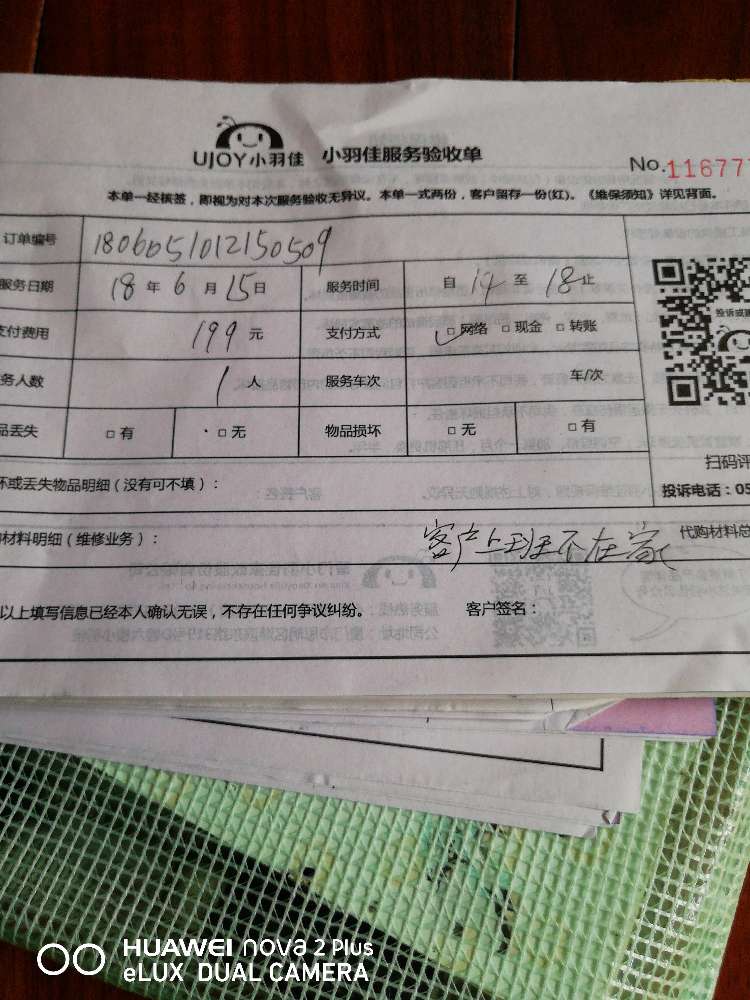 UJOY小羽佳 小羽佳服务验收单
No.11677
本单一经核签，即视为对本次服务验收无异议。本单一式两份，客户留存一份(红)。《维保须知》详见背面。
订单编号 1806051012150509
服务日期 18 年 6 月 15 日 服务时间 自 14 至 18 止
支付费用 199 元 支付方式 □ 网络 □ 现金 □ 转账
务人数 1 人 服务车次 车/次
品丢失 □ 有 □ 无 物品损坏 □ 无 □ 有
投诉或
扫码评
坏或丢失物品明细（没有可不填）：
投诉电话：05
材料明细（维修业务）： 客户上班不在家 代购材料总
以上填写信息已经本人确认无误，不存在任何争议纠纷。 客户签名：
HUAWEI nova 2 Plus
eLUX DUAL CAMERA